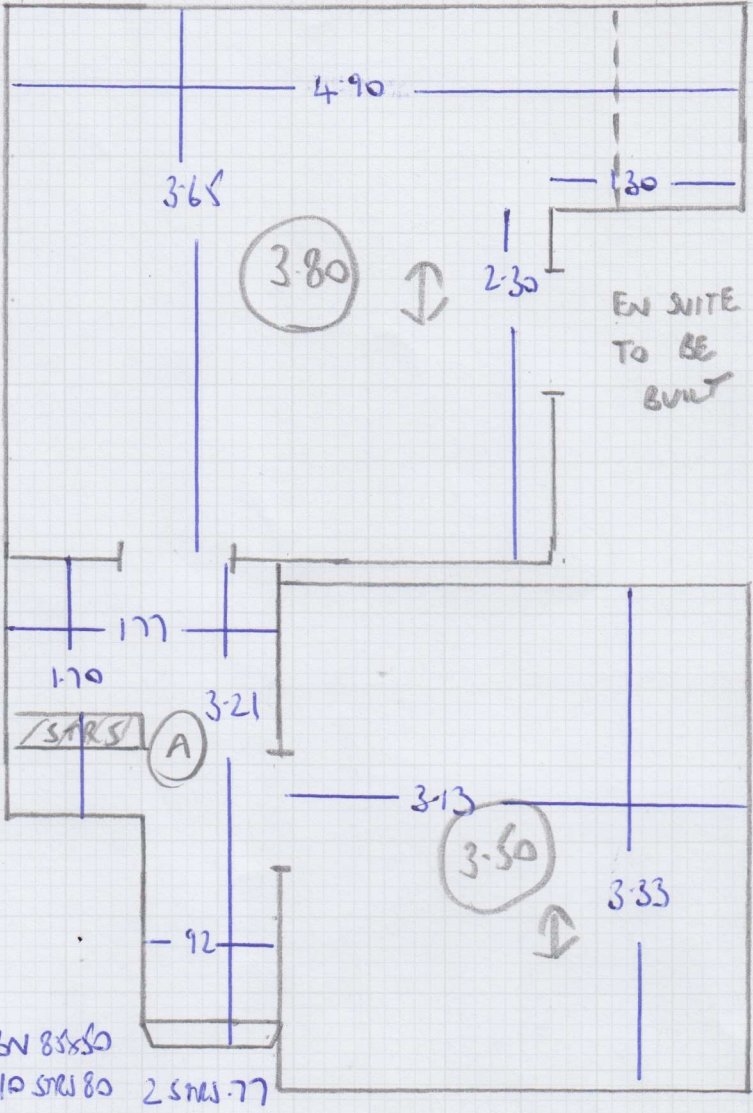 4.90
3.65
1.30
3.80
2.30
EN SUITE
TO BE
BUILT
1.77
1.70
3.21
STRS
A
3.13
3.50
3.33
92
85x50
10 STRS 80
2 STRS .77